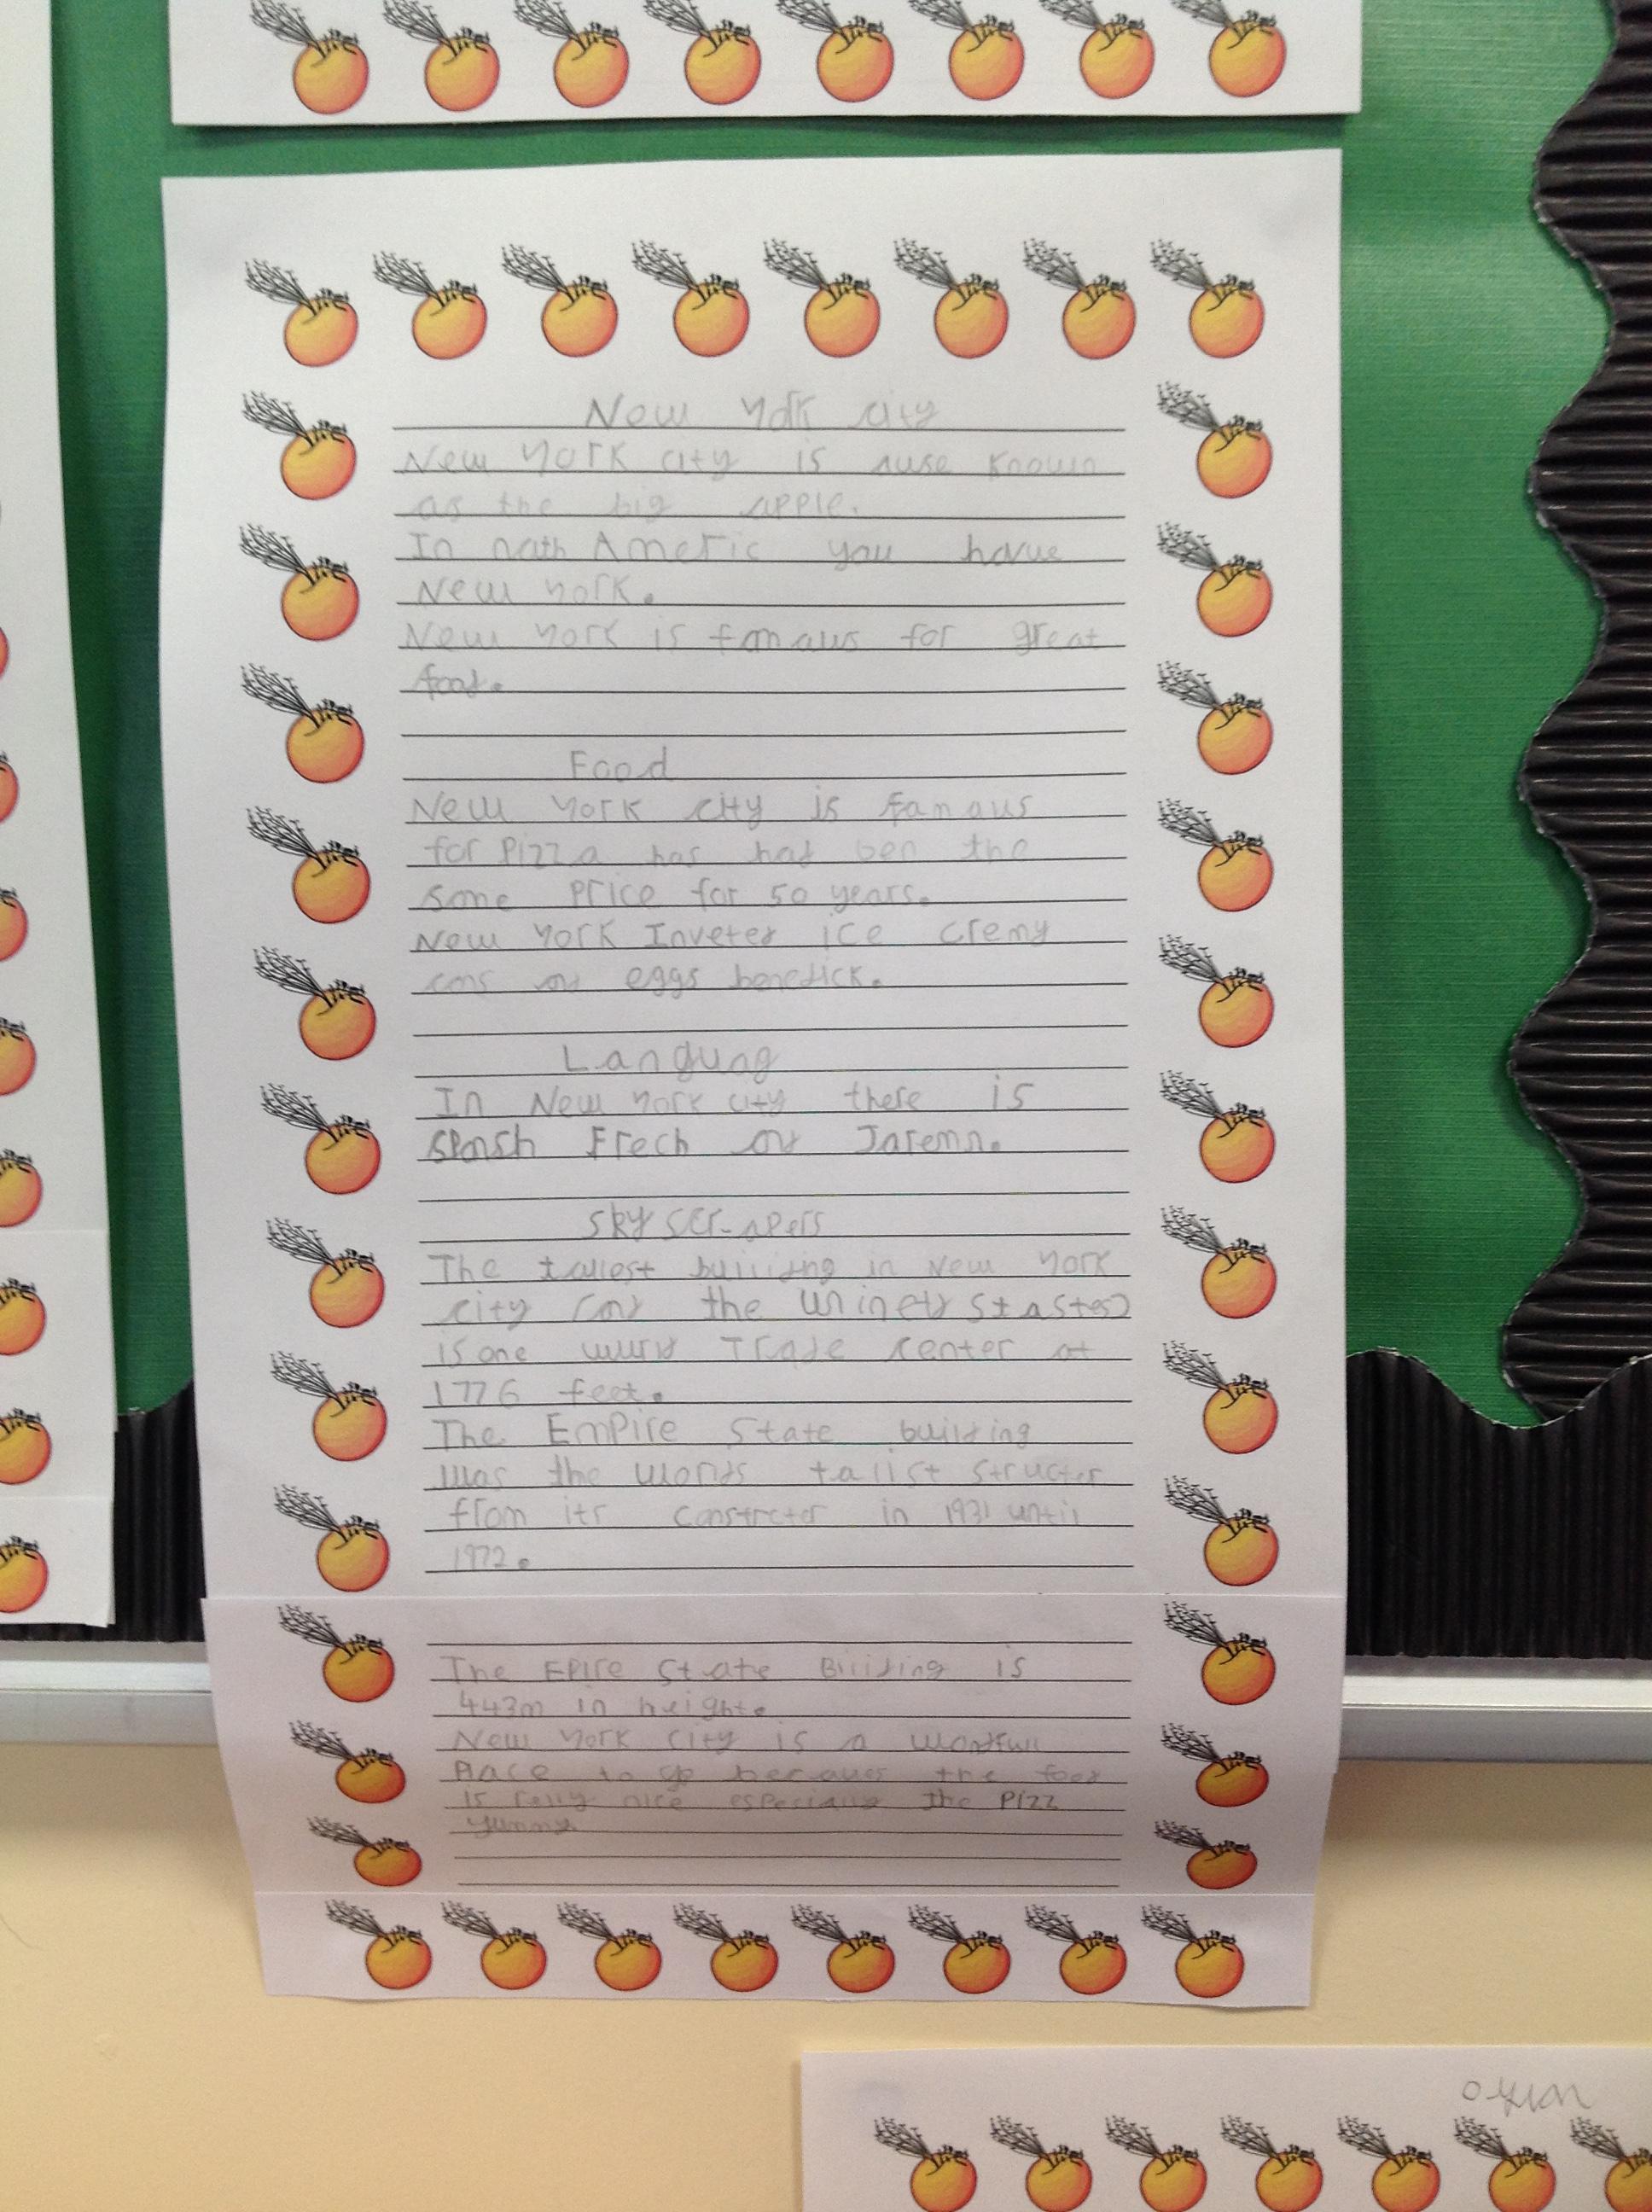 New York city
New York city is auso known
as the big apple.
In nath Americ you havue
New York.
New York is famaus for great
food.
Food
New York city is famaus
for Pizza has had ben the
same Price for 50 years.
New York Inveted ice cremy
cons and eggs benedick.
Languag
In New York city there is
Spansh Frech and Jaremn.
skyscrapers
The tallest building in New York
city (and the Unined Stastes)
is one world Trade center at
1776 feet.
The EmPire State building
was the worlds tallist structer
from its constrcter in 1931 until
1972.
The EPire State Biilding is
443m in height.
New York city is a
Place to go becaues the food
is relly nice especially the Pizz
yummy.